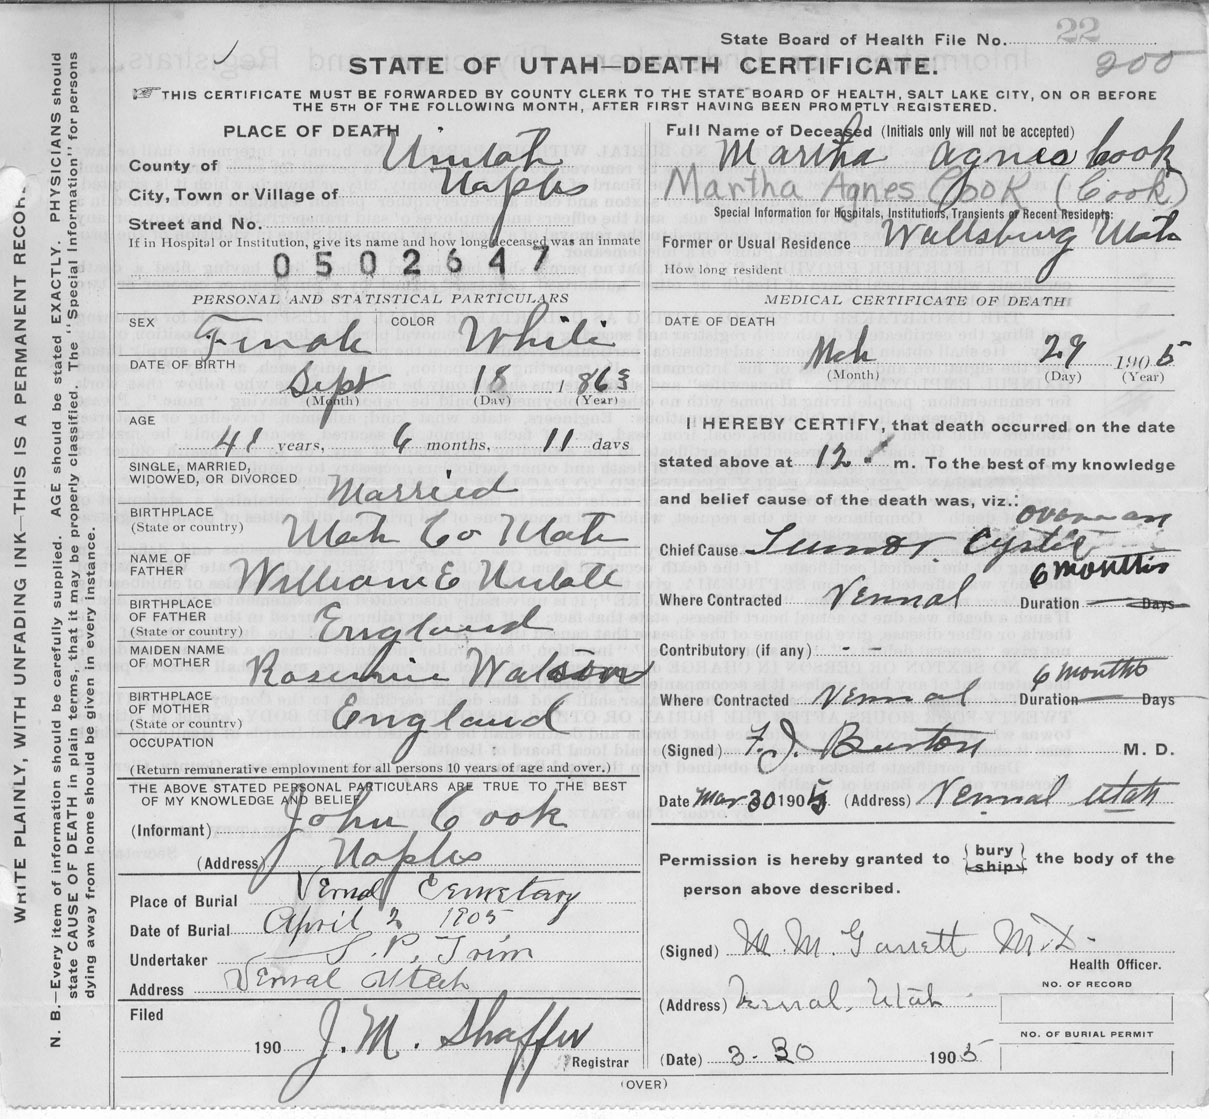 State Board of Health File No. 22
200
STATE OF UTAH—DEATH CERTIFICATE.
THIS CERTIFICATE MUST BE FORWARDED BY COUNTY CLERK TO THE STATE BOARD OF HEALTH, SALT LAKE CITY, ON OR BEFORE
THE 5TH OF THE FOLLOWING MONTH, AFTER FIRST HAVING BEEN PROMPTLY REGISTERED.
WRITE PLAINLY, WITH UNFADING INK—THIS IS A PERMANENT RECORD.
N. B.—Every item of information should be carefully supplied. AGE should be stated EXACTLY. PHYSICIANS should
state CAUSE OF DEATH in plain terms, that it may be properly classified. the "Special Information" for persons
dying away from home should be given in every instance.
PLACE OF DEATH
County of Uintah
City, Town or Village of Naples
Street and No.
If in Hospital or Institution, give its name and how long deceased was an inmate
0502647
PERSONAL AND STATISTICAL PARTICULARS
SEX Female COLOR White
DATE OF BIRTH Sept 18 1863
(Month) (Day) (Year)
AGE
41 years, 6 months, 11 days
SINGLE, MARRIED,
WIDOWED, OR DIVORCED Married
BIRTHPLACE
(State or country) Utah Co Utah
NAME OF
FATHER William E
BIRTHPLACE
OF FATHER
(State or country) England
MAIDEN NAME
OF MOTHER Watson
BIRTHPLACE
OF MOTHER
(State or country) England
OCCUPATION
(Return remunerative employment for all persons 10 years of age and over.)
THE ABOVE STATED PERSONAL PARTICULARS ARE TRUE TO THE BEST
OF MY KNOWLEDGE AND BELIEF
(Informant) John Cook
(Address) Naples
Place of Burial Vernal Cemetary
Date of Burial April 2 1905
Undertaker S. P. Trim
Address Vernal Utah
Filed
190 J. M. Shaffer
Registrar
Full Name of Deceased (Initials only will not be accepted)
Martha Agnes Cook
Martha Agnes Cook (Cook)
Special Information for Hospitals, Institutions, Transients or Recent Residents:
Former or Usual Residence Wallsburg Utah
How long resident
MEDICAL CERTIFICATE OF DEATH
DATE OF DEATH
Mch 29 1905
(Month) (Day) (Year)
I HEREBY CERTIFY, that death occurred on the date
stated above at 12 m. To the best of my knowledge
and belief cause of the death was, viz.:
ovarian
Chief Cause Tumor Cystic
6 months
Where Contracted Vernal Duration Days
Contributory (if any) - -
6 months
Where Contracted Vernal Duration Days
(Signed) F. J. Burton M. D.
Date Mar 30 1905 (Address) Vernal Utah
Permission is hereby granted to {bury
ship} the body of the
person above described.
(Signed) M. M. Garrett M.D.
Health Officer.
(Address) Vernal, Utah
NO. OF RECORD
NO. OF BURIAL PERMIT
(Date) 3-30 1905
(OVER)